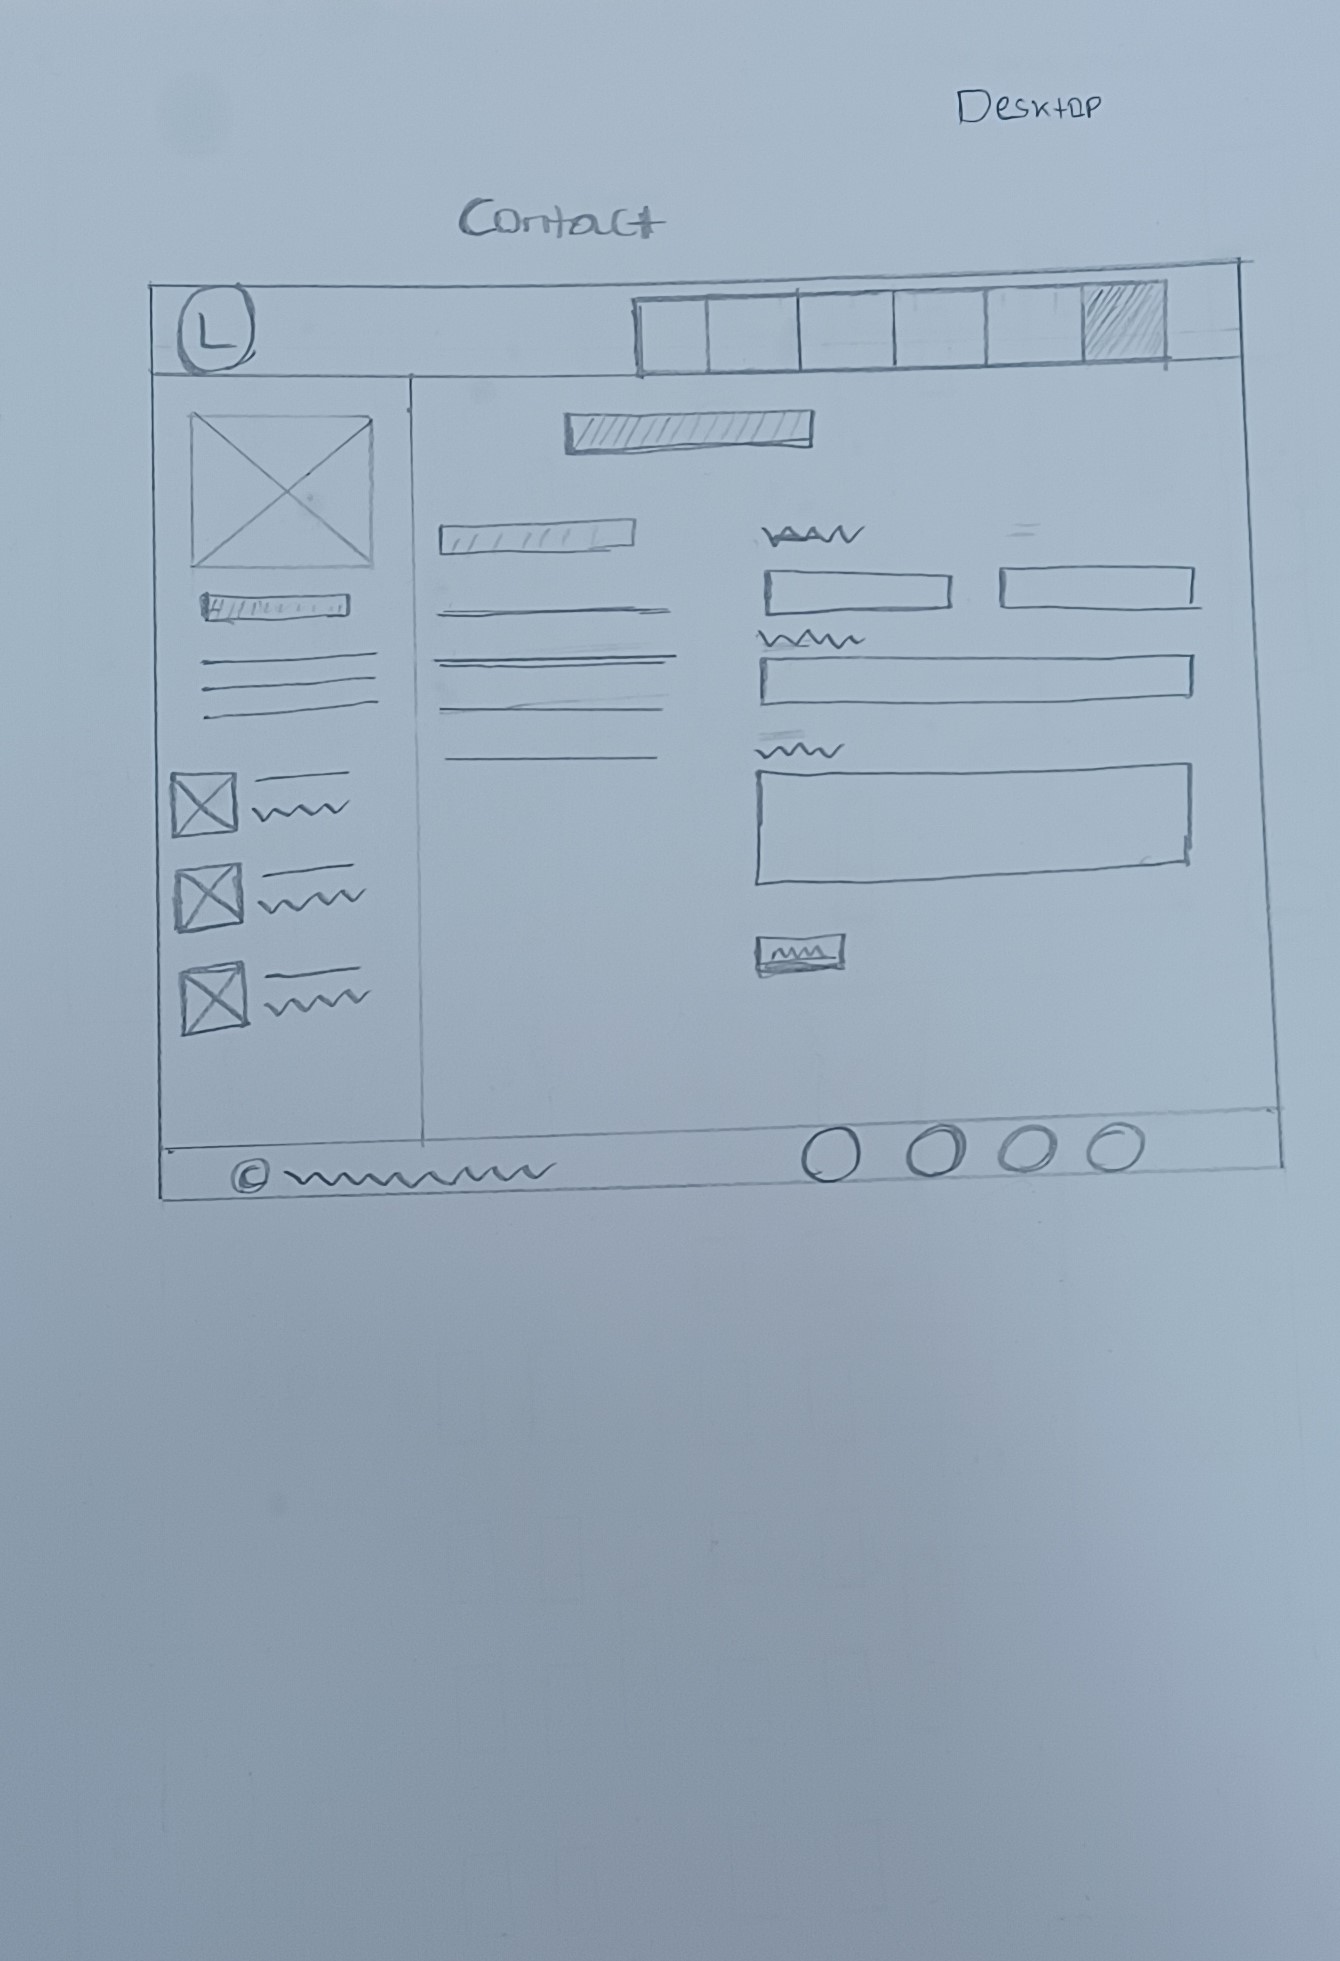 Desktop
Contact
L
©